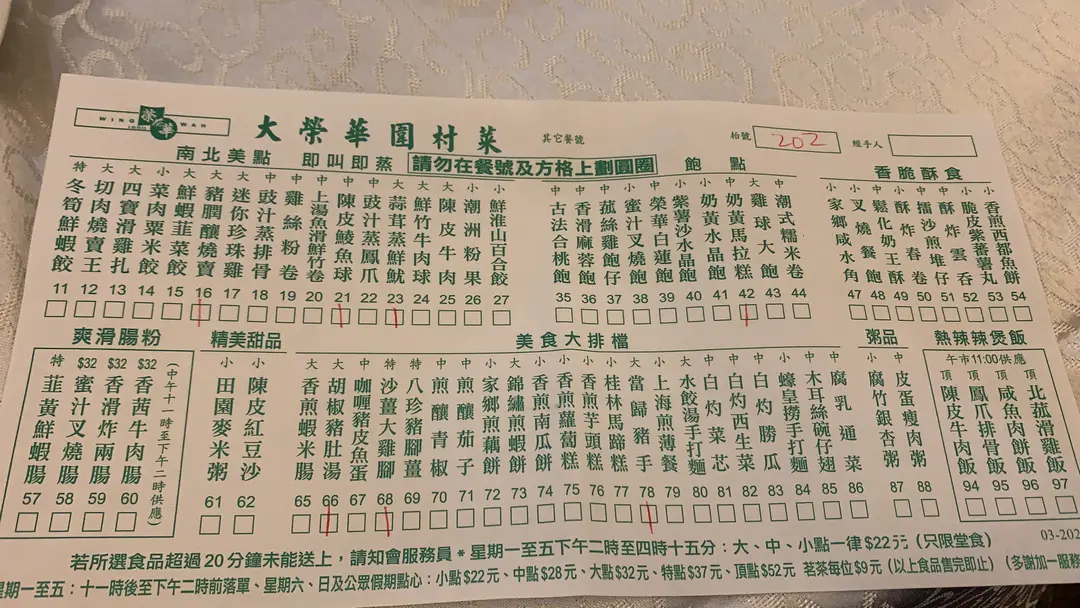 WING WAH
榮華
1950
大榮華圍村菜
其它餐號
枱號 202
經手人
南北美點 即叫即蒸
請勿在餐號及方格上劃圓圈
飽點
香脆酥食
特 冬筍鮮蝦餃 11
大 切肉燒賣王 12
大 四寶滑雞扎 13
小 菜肉粟米餃 14
大 鮮蝦韮菜餃 15
大 豬膶釀燒賣 16
大 迷你珍珠雞 17
中 豉汁蒸排骨 18
中 雞絲粉卷 19
中 上湯魚滑鮮竹卷 20
中 陳皮鯪魚球 21
中 豉汁蒸鳳爪 22
大 蒜茸蒸鮮魷 23
大 鮮竹牛肉球 24
大 陳皮牛肉 25
小 潮洲粉果 26
小 鮮淮山百合餃 27
中 古法合桃飽 35
中 香滑麻蓉飽 36
中 菰絲雞飽仔 37
小 蜜汁叉燒飽 38
小 榮華白蓮飽 39
中 紫薯沙水晶飽 40
小 奶黃水晶飽 41
中 奶黃馬拉糕 42
大 雞球大飽 43
中 潮式糯米卷 44
小 家鄉咸水角 47
小 叉燒餐飽 48
中 鬆化奶王酥 49
小 酥炸春卷 50
中 擂沙煎堆仔 51
中 酥炸雲吞 52
小 脆皮紫番薯丸 53
小 香煎西都魚餅 54
爽滑腸粉
精美甜品
美食大排檔
粥品
熱辣辣煲飯
特 韮黃鮮蝦腸 57
$32 蜜汁叉燒腸 58
$32 香滑炸兩腸 59
$32 香茜牛肉腸 60
(中午十一時至下午二時供應)
小 田園麥米粥 61
小 陳皮紅豆沙 62
大 香煎蝦米腸 65
大 胡椒豬肚湯 66
中 咖喱豬皮魚蛋 67
特 沙薑大雞腳 68
特 八珍豬腳薑 69
中 煎釀青椒 70
中 煎釀茄子 71
小 家鄉煎藕餅 72
大 錦繡煎蝦餅 73
小 香煎南瓜餅 74
小 香煎蘿蔔糕 75
小 香煎芋頭糕 76
小 桂林馬蹄糕 77
大 當歸豬手 78
小 上海煎薄餐 79
大 水餃湯手打麵 80
中 白灼菜芯 81
中 白灼西生菜 82
中 白灼勝瓜 83
小 蠔皇撈手打麵 84
中 木耳絲碗仔翅 85
中 腐乳通菜 86
小 腐竹銀杏粥 87
中 皮蛋瘦肉粥 88
午市11:00供應
頂 陳皮牛肉飯 94
頂 鳳爪排骨飯 95
頂 咸魚肉餅飯 96
頂 北菰滑雞飯 97
若所選食品超過20分鐘未能送上，請知會服務員＊星期一至五下午二時至四時十五分：大、中、小點一律$22元 (只限堂食)
03-202
星期一至五：十一時後至下午二時前落單、星期六、日及公眾假期點心：小點$22元、中點$28元、大點$32元、特點$37元、頂點$52元 茗茶每位$9元 (以上食品售完即止) (多謝加一服務